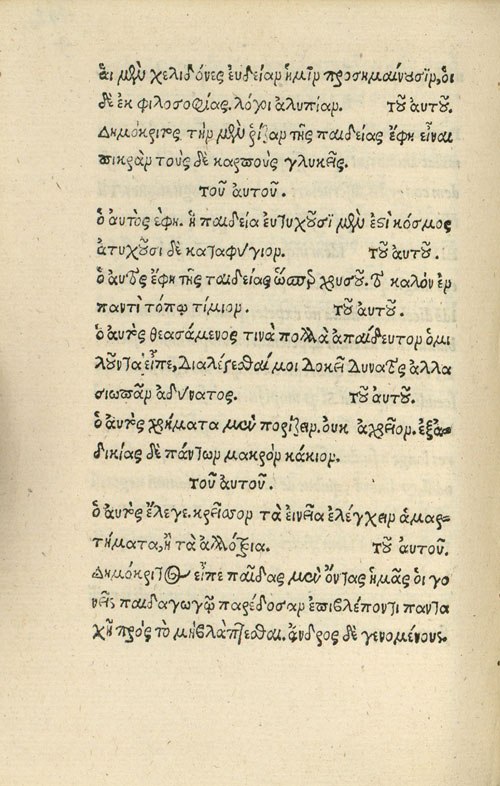 ἁι μὲν χελιδόνες ἐυδείαν ἡμῖν προσημαίνουσιν, ὁι
δὲ ἐκ φιλοσοφίας. λόγοι ἀλυπίαν. τοῦ ἀυτοῦ.
Δημόκριτος τὴν μὲν ῥίζαν τῆς παιδείας ἔφη εἶναι
πικρὰν τοὺς δὲ καρποὺς γλυκεῖς.
τοῦ ἀυτοῦ.
ὁ ἀυτὸς ἔφη. ἡ παιδεία ἐυτυχοῦσι μὲν ἐστὶ κόσμος
ἀτυχοῦσι δὲ καταφύγιον. τοῦ ἀυτοῦ.
ὁ ἀυτὸς ἔφη τῆς παιδείας ὥσπερ χρυσοῦ. τὸ καλὸν ἐν
παντὶ τόπῳ τίμιον. τοῦ ἀυτοῦ.
ὁ ἀυτὸς θεασάμενος τινὰ πολλὰ ἀπαίδευτον ὁμι
λοῦντα εἶπε, Διαλέγεσθαί μοι Δοκεῖ Δυνατὸς ἀλλα
σιωπᾶν ἀδύνατος. τοῦ ἀυτοῦ.
ὁ ἀυτὸς χρήματα μὲν πορίζειν. ὀυκ ἀχρεῖον. ἐξ ἀ-
δικίας δὲ πάντων μακρὸν κάκιον.
τοῦ ἀυτοῦ.
ὁ ἀυτὸς ἔλεγε. κρεῖσσον τὰ ὀικεῖα ἐλέγχειν ἁμαρ-
τήματα, ἢ τὰ ἀλλότρια. τοῦ ἀυτοῦ.
Δημόκριτος εἶπε παῖδας μὲν ὄντας ἡμᾶς ὁι γο
νεῖς παιδαγωγῷ παρέδοσαν ἐπιβλέποντι παντα
χῆ πρὸς τὸ μὴ βλάπτεσθαι. ἄνδρος δὲ γενομένους.